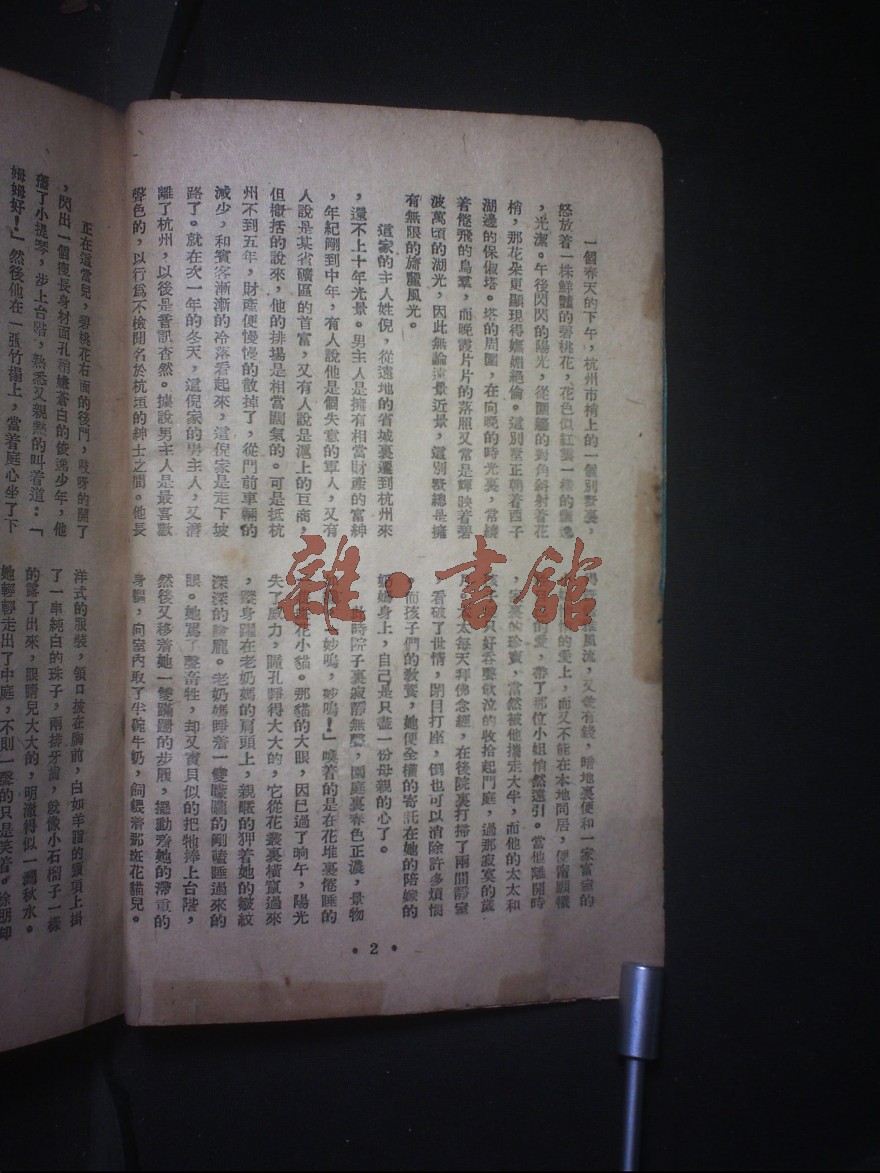 一個春天的下午，杭州市梢上的一個別墅裏，
怒放着一株鮮豔的碧桃花，花色似紅裝一樣的飄逸
，光潔。午後閃閃的陽光，從圍牆的對角斜射着花
梢，那花朵更顯現得嫵媚絕倫。這別墅正朝着西子
湖邊的保俶塔。塔的周圍，在向晚的時光裏，常繞
着倦飛的鳥羣，而晚霞片片的落照又常是輝映着碧
波萬頃的湖光，因此無論遠景近景，這別墅總是擁
有無限的旖旎風光。
這家的主人姓倪，從遠地的省城裏遷到杭州來
，還不上十年光景。男主人是擁有相當財產的富紳
，年紀剛到中年，有人說他是個失意的軍人，又有
人說是某省礦區的首富，又有人說是滬上的巨商，
但概括的說來，他的排場是相當闊氣的。可是抵杭
州不到五年，財產便慢慢的散掉了，從門前車輛的
減少，和賓客漸漸的冷落看起來，這倪家是走下坡
路了。就在次一年的冬天，這倪家的男主人，又潛
離了杭州，以後是音訊杳然。據說男主人是最喜歡
聲色的，以行爲不檢聞名於杭垣的紳士之間。他長
得 風流，又 有錢，暗地裏便和一家富室的
的愛上，而又不能在本地同居，便甯願犧
的愛，帶了那位小姐悄然遠引。當他離開時
，家裏的珍寶，當然被他攜走大半，而他的太太和
孩子 只好吞聲飲泣的收拾起門庭，過那寂寞的歲
月。 太太每天拜佛念經，在後院裏打掃了兩間靜室
，看破了世情，閉目打座，倒也可以消除許多煩惱
，而孩子們的教養，她便全權的寄託在她的陪嫁的
奶媽身上，自己是只盡一份母親的心了。
此時院子裏寂靜無聲，園庭裏春色正濃，景物
妙嗚，妙嗚！」喚着的是在花堆裏倦睡的
花小貓。那貓的大眼，因已過了晌午，陽光
失了威力，瞳孔睜得大大的，它從花叢裏橫竄過來
，蹤身躍在老奶媽的肩頭上，親暱的狎着她的皺紋
深深的臉龐。老奶媽睜着一雙朦朧的剛瞌睡過來的
眼。她罵了聲畜牲，却又寶貝似的把牠捧上台階，
然後又移着她一雙蹣跚的步履，擺動着她的滯重的
身軀，向室內取了半碗牛奶，飼餵着那斑花貓兒。
• 2 •
正在這當兒，碧桃花右面的後門，吱呀的開了
，閃出一個瘦長身材面孔稍嫌蒼白的俊逸少年，他
攜了小提琴，步上台階，熟悉又親熱的叫着道：「
姆姆好！」然後他在一張竹榻上，當着庭心坐了下
洋式的服裝，領口披在胸前，白如羊脂的頸項上掛
了一串純白的珠子，兩排牙齒，就像小石榴子一樣
的露了出來，眼睛兒大大的，明澈得似一灣秋水。
她輕輕走出了中庭，不則一聲的只是笑着。
雜·書館